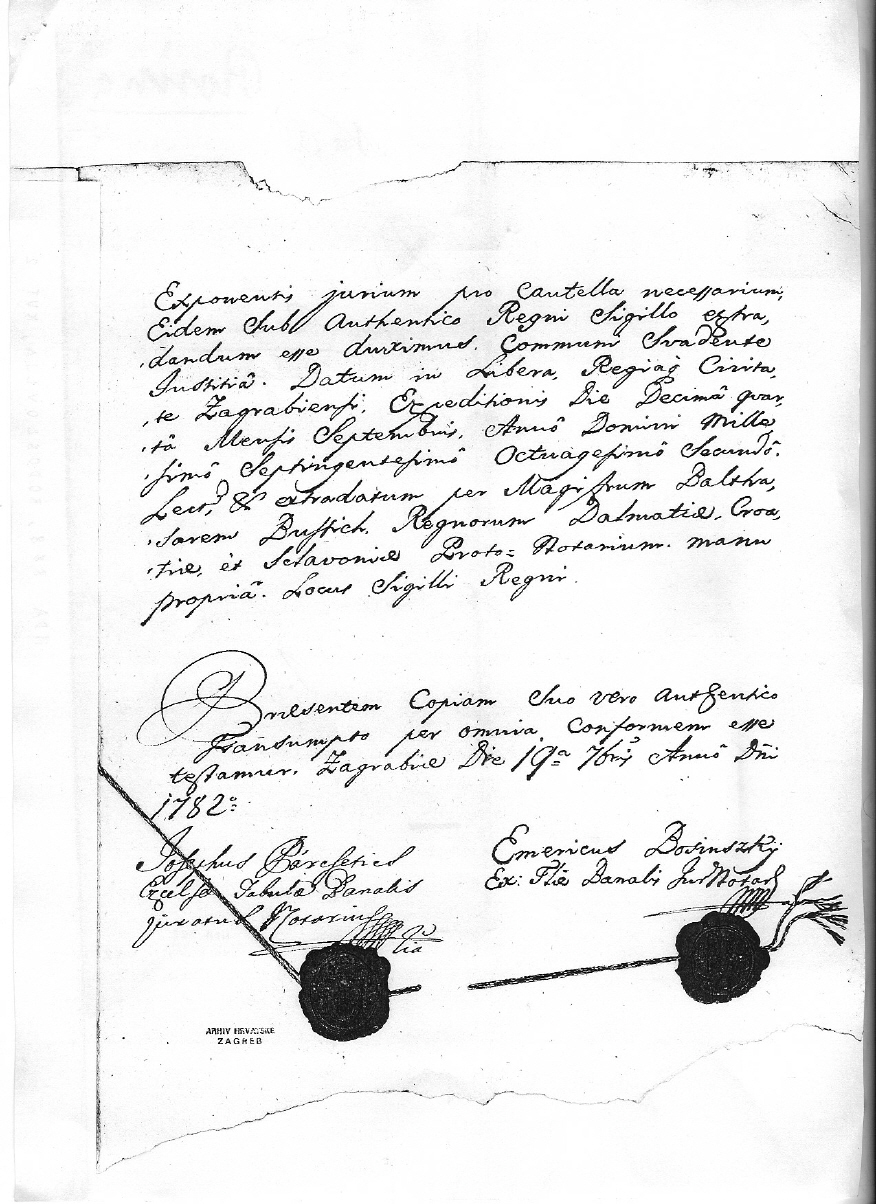 Exponentis jurium pro Cautella necessarium,
Eidem Sub Authentico Regni Sigillo extra,
,dandum esse duximus. Communi Svadente
Iustitiâ. Datum in Libera, Regiaq̃ Civita,
,te Zagrabiensi, Expeditionis Die Decimâ quar,
,tâ Mensis Septembris, Annô Domini Mille,
simô Septingentesimô Octuagesimô Secundô.
Lect, & extradatum per Magistrum Baltha,
,sarem Bussich, Regnorum Dalmatiæ, Croa,
,tiæ, et Sclavoniæ Proto=Notarium. manu
propriâ. Locus Sigilli Regni.
Præsentem Copiam Suo vero Authentico
Transumpto per omnia Conformem esse
testamur. Zagrabiæ Die 19a 7bris Annô Dñi
1782o
Josephus
Excelsæ Tabulæ Banalis
juratus Notarius
Emericus
Ex: Tlæ Banalis Jur Notar
ARHIV HRVATSKE
ZAGREB